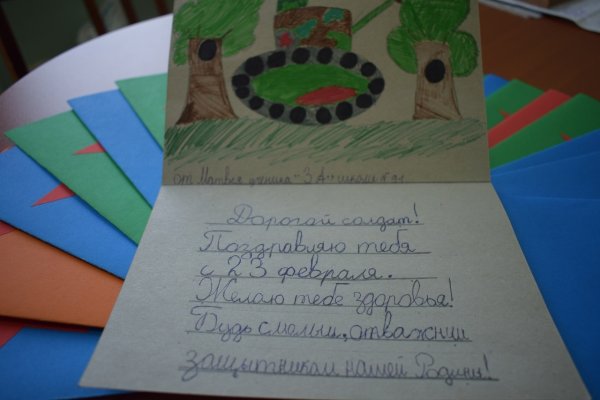 от Матвея ученика "3 А" школы №
Дорогой солдат!
Поздравляю тебя
с 23 февраля.
Желаю тебе здоровья!
Будь смелым, отважным
защытником нашей Родины!